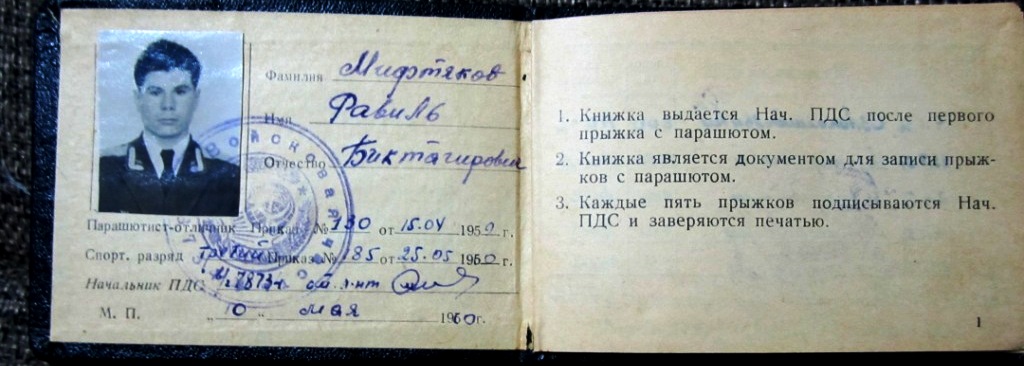 Фамилия Мифтяков
Имя Равиль
Отчество Биктагирович
Парашютист-отличник Приказ № 130 от 15.04 1960 г.
Спорт. разряд третий Приказ № 85 от 25.05 1960 г.
Начальник ПДС ст. л-нт
М. П. „10" мая 1960г.
1. Книжка выдается Нач. ПДС после первого
прыжка с парашютом.
2. Книжка является документом для записи прыж-
ков с парашютом.
3. Каждые пять прыжков подписываются Нач.
ПДС и заверяются печатью.
1